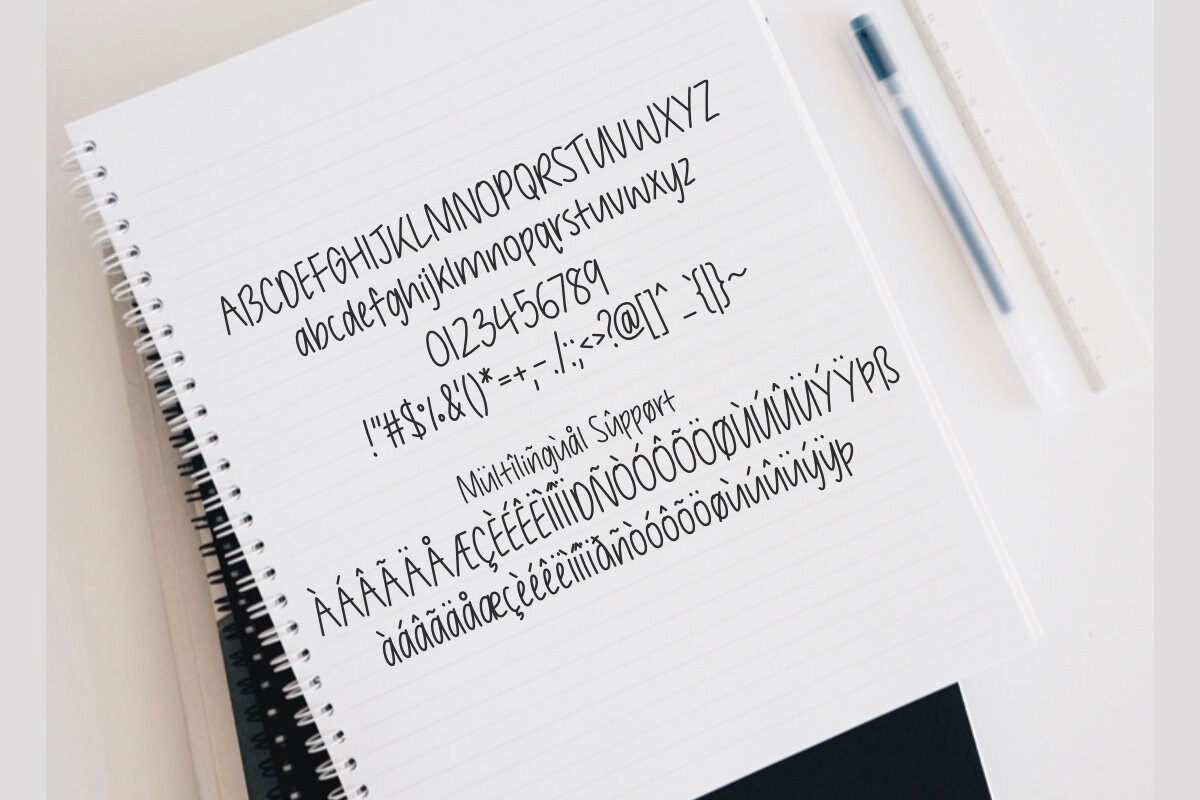 ABCDEFGHIJKLMNOPQRSTUVWXYZ
abcdefghijklmnopqrstuvwxyz
0123456789
!"#$%&'()*=+,-./:;<>?@[]^_`{|}~
Mültîlíñgùål Sûppørt
ÀÁÂÃÄÅÆÇÈÉÊËÌÍÎÏÐÑÒÓÔÕÖØÙÚÛÜÝŸÞß
àáâãäåæçèéêëìíîïðñòóôõöøùúûüýÿþ